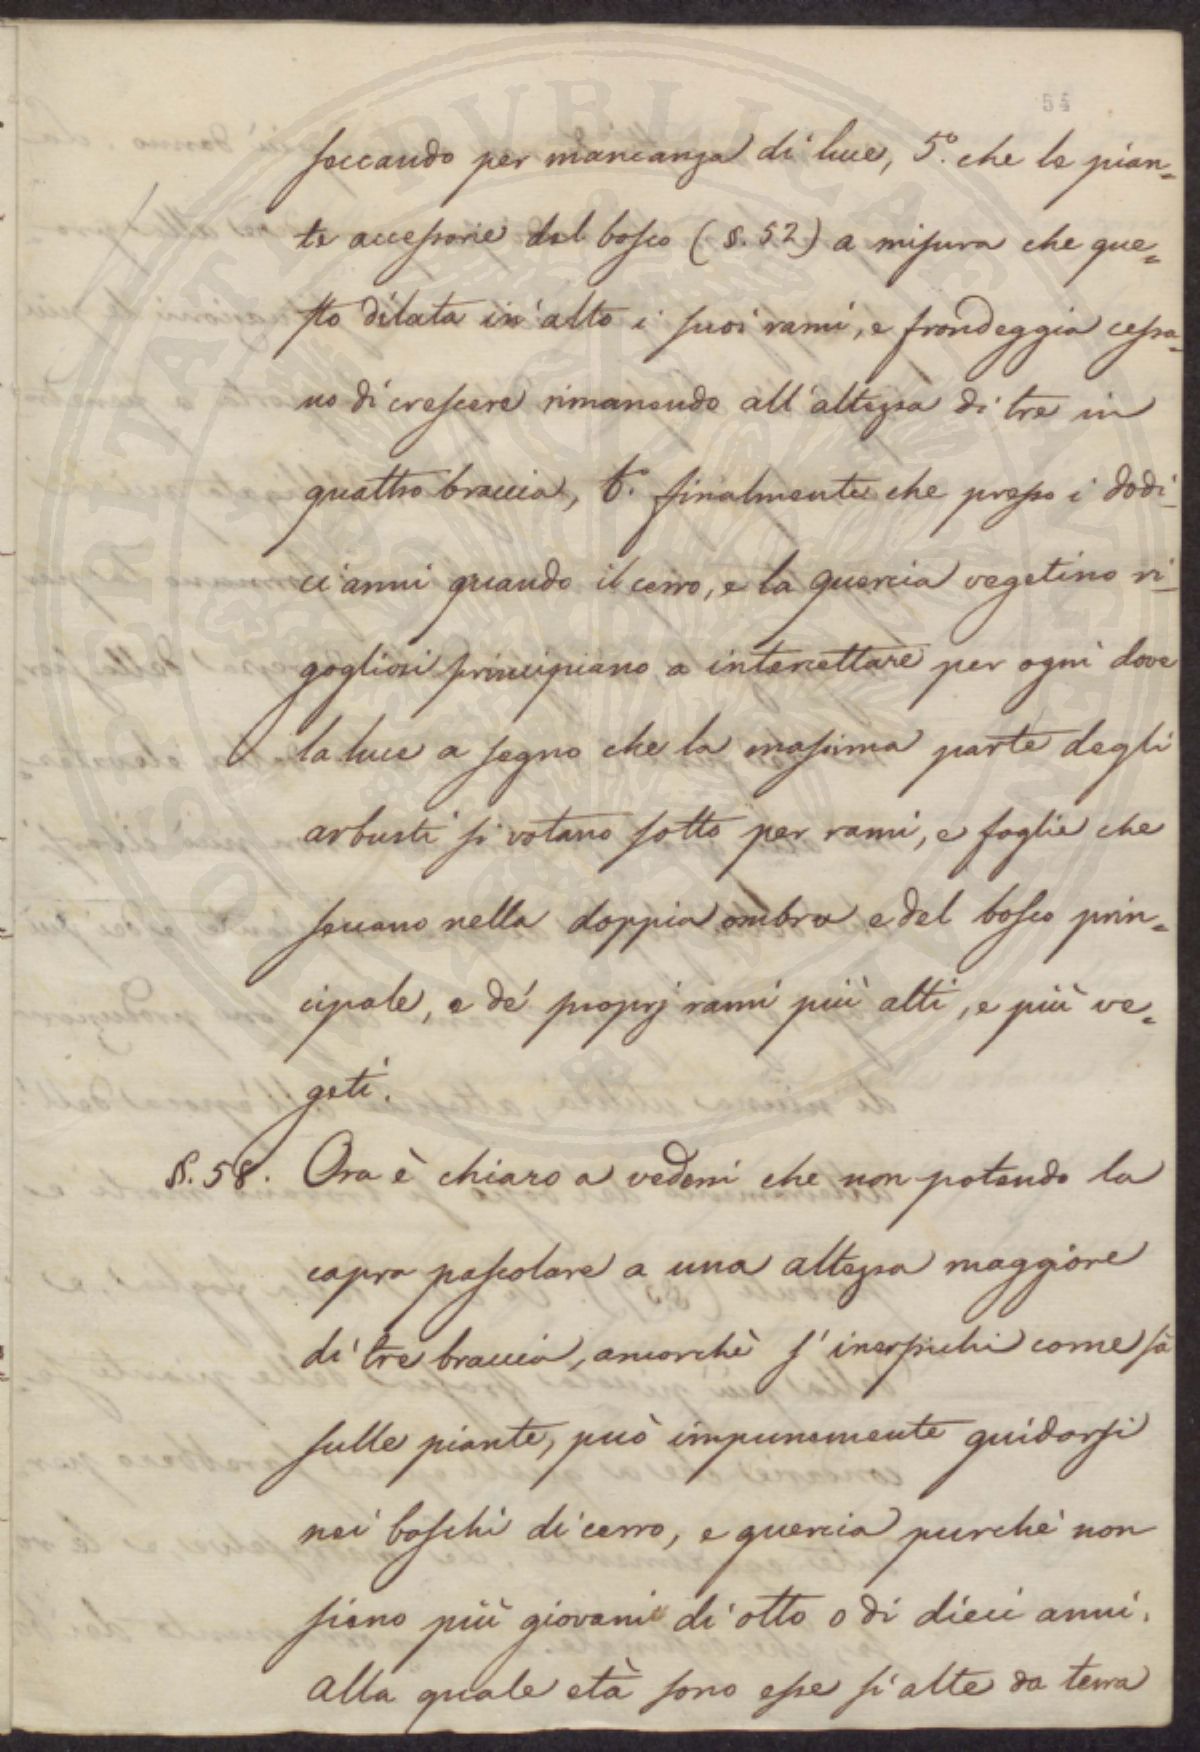 54
seccando per mancanza di luce, 5.° che le pian=
te accessorie del bosco (§. 52) a misura che que=
sto dilata in alto i suoi rami, e frondeggia cessa=
no di crescere rimanendo all'altezza di tre in
quattro braccia, 6.° finalmente che presso i dodi_
ci anni quando il cerro, e la quercia vegetino ri_
gogliosi principiano a intercettare per ogni dove
la luce a segno che la massima parte degli
arbusti si votano sotto per rami, e foglie che
seccano nella doppia ombra e del bosco prin=
cipale, e de' proprj rami più alti, e più ve=
geti.
§. 58. Ora è chiaro a vedersi che non potendo la
capra pascolare a una altezza maggiore
di tre braccia, ancorchè s'inerpichi come fà
sulle piante, può impunemente guidarsi
nei boschi di cerro, e quercia purchè non
sieno più giovani di otto o di dieci anni.
alla quale età sono esse sì alte da terra